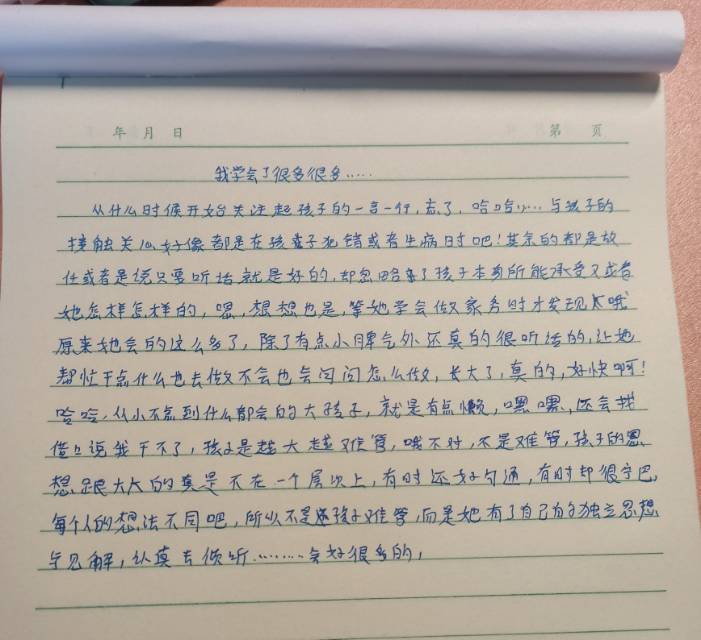 年 月 日 第 页
我学会了很多很多.....
从什么时候开始关注起孩子的一言一行,忘了,哈哈,... 与孩子的
接触关心好像都是在孩子犯错或者生病时吧!其余的都是放
任或者是说只要听话就是好的,却忽略了孩子本身所能承受又或者
她怎样怎样的,嗯,想想也是,等她学会做家务时才发现哦
原来她会的这么多了,除了有点小脾气外还真的很听话的,让她
帮忙干点什么也去做不会也会问问怎么做,长大了,真的,好快啊!
哈哈,从小不点到什么都会的大孩子,就是有点懒,嘿嘿,还会找
借口说我干不了,孩子是越大越难管,哦不对,不是难管,孩子的思
想跟大人的真是不在一个层次上,有时还好勾通,有时却很
每个人的想法不同吧,所以不是孩子难管,而是她有了自己的独立思想
与见解,认真去倾听........会好很多的,